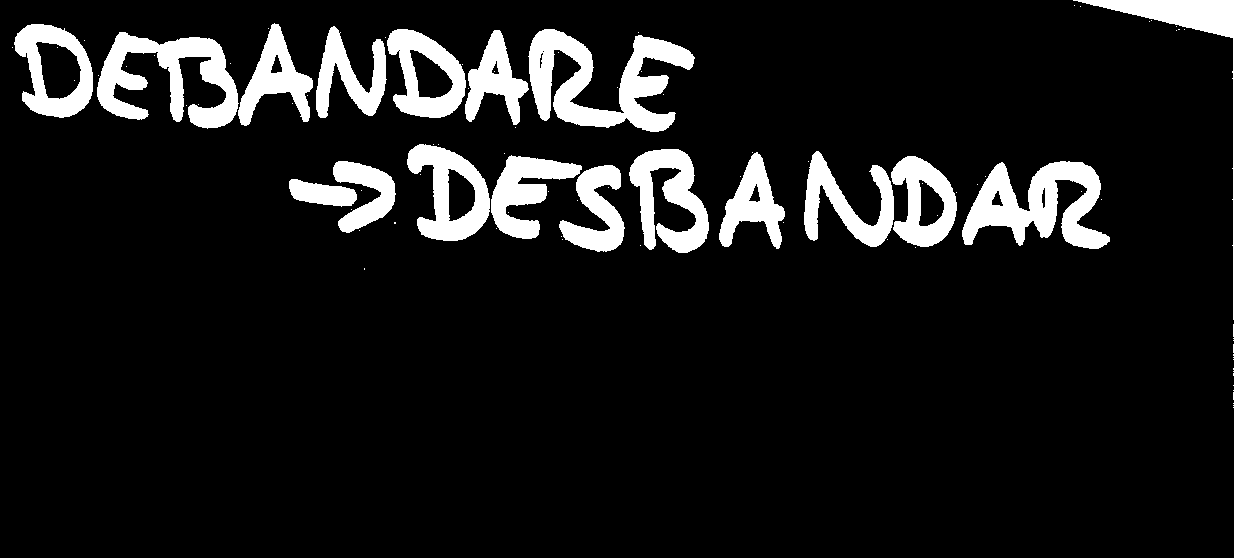 DEBANDARE
→DESBANDAR